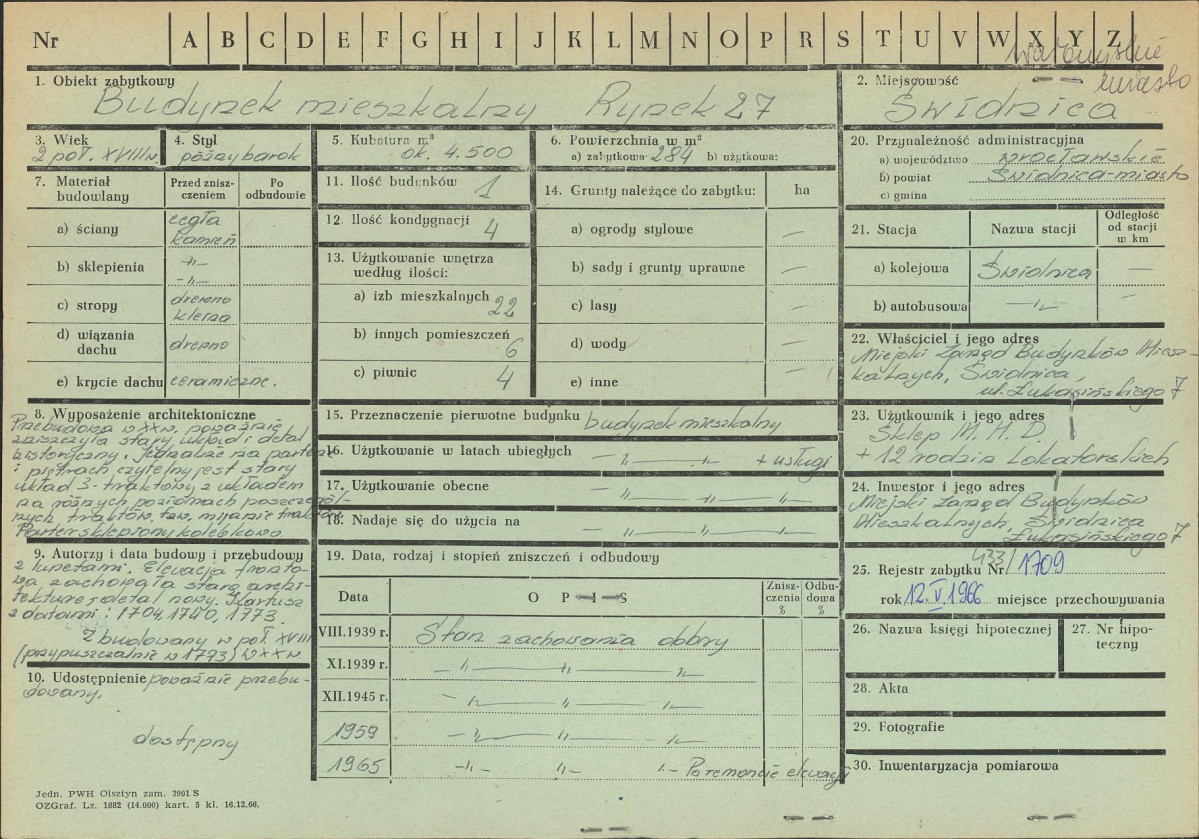 Nr A B C D E F G H I J K L M N O P R S T U V W X Y Z
miasto
1. Obiekt zabytkowy
Budynek mieszkalny Rynek 27
2. Miejscowość
Świdnica
3. Wiek
2 poł. XVIII w.
4. Styl
późny barok
5. Kubatura m³
ok. 4.500
6. Powierzchnia w m²
a) zabytkowa 284 b) użytkowa:
7. Materiał budowlany
Przed zniszczeniem
Po odbudowie
a) ściany
cegła
kamień
b) sklepienia
-"-
-"-
c) stropy
drewno
klerza
d) wiązania dachu
drewno
e) krycie dachu
ceramiczne.
8. Wyposażenie architektoniczne
Przebudowa w XX w. poważnie
zniszczyła stary układ i detal
historyczny, jednakże na parterze
i piętrach czytelny jest stary
układ 3-traktowy z układem
na różnych poziomach poszczegól-
nych traktów, tzw. mijanie traktów
Parter sklepiony kolebkowo
9. Autorzy i data budowy i przebudowy
z lunetami. Elewacja fronto-
wa zachowała starą archi-
tekturę, detal nowy. Kartusz
z datami: 1704, 1740, 1773.
Zbudowany w poł. XVIII
(przypuszczalnie w 1793) w XX w.
10. Udostępnienie poważnie przebu-
dowany.
dostępny
11. Ilość budynków
1
12. Ilość kondygnacji
4
13. Użytkowanie wnętrza według ilości:
a) izb mieszkalnych 22
b) innych pomieszczeń 6
c) piwnic 4
14. Grunty należące do zabytku:
ha
a) ogrody stylowe —
b) sady i grunty uprawne —
c) lasy —
d) wody —
e) inne —
15. Przeznaczenie pierwotne budynku budynek mieszkalny
16. Użytkowanie w latach ubiegłych -"- -"- + usługi
17. Użytkowanie obecne -"- -"- -"-
18. Nadaje się do użycia na -"- -"- -"-
19. Data, rodzaj i stopień zniszczeń i odbudowy
Data
OPIS
Zniszczenia %
Odbudowa %
VIII.1939 r. Stan zachowania dobry
XI.1939 r. -"- -"- -"-
XII.1945 r. -"- -"- -"-
1959 -"- -"- -"-
1965 -"- -"- -"- Po remoncie elewacji
20. Przynależność administracyjna
a) województwo wrocławskie
b) powiat Świdnica-miasto
c) gmina
21. Stacja
Nazwa stacji
Odległość od stacji w km
a) kolejowa Świdnica —
b) autobusowa -"- —
22. Właściciel i jego adres
Miejski Zarząd Budynków Miesz-
kalnych, Świdnica,
ul. Łukasińskiego 7
23. Użytkownik i jego adres
Sklep M.H.D.
+ 12 rodzin lokatorskich
24. Inwestor i jego adres
Miejski Zarząd Budynków
Mieszkalnych, Świdnica
Łukasińskiego 7
25. Rejestr zabytku Nr 433/1709
rok 12.V.1966 miejsce przechowywania
26. Nazwa księgi hipotecznej
27. Nr hipoteczny
28. Akta
29. Fotografie
30. Inwentaryzacja pomiarowa
Jedn. PWH Olsztyn zam. 3991 S
OZGraf. Lz. 1882 (14.000) kart. 5 kl. 16.12.66.